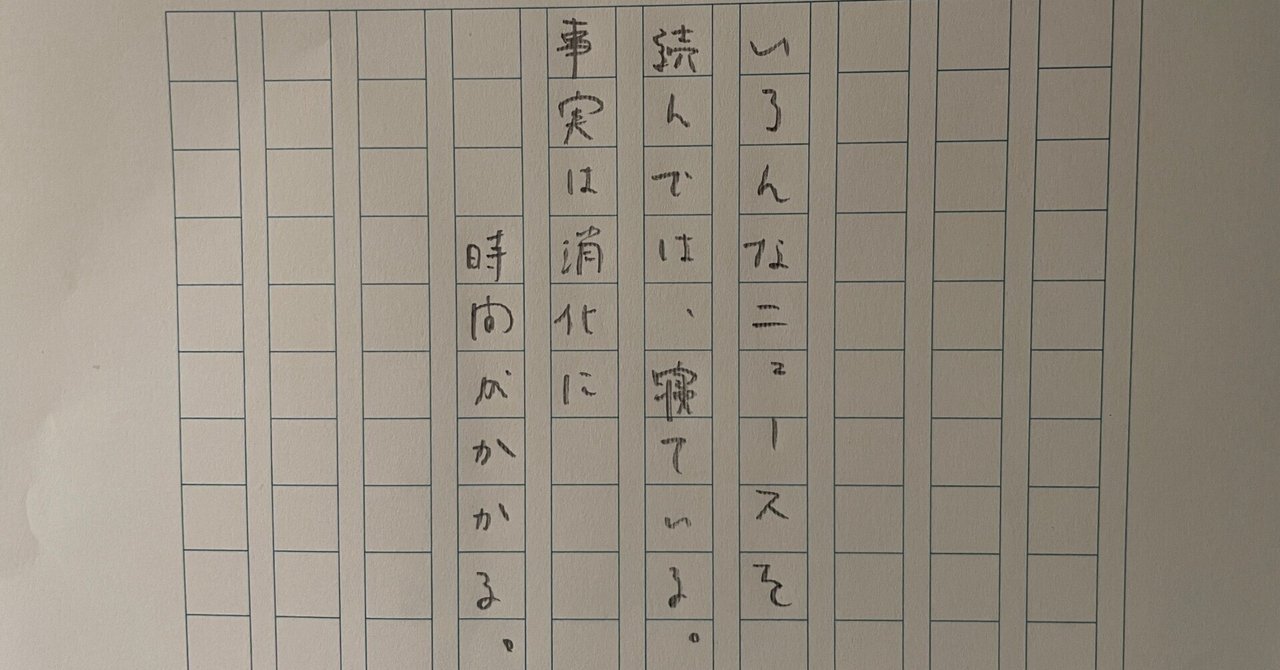 いろんなニュースを
続んでは、寝ている。
事実は消化に
時間がかかる。